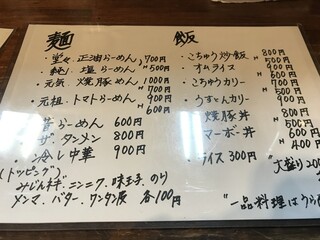 麺
・堂々 正油らーめん 700円
・軽し 塩らーめん 〃500円
・元気 焼豚めん 1000円
〃700円
・元祖・トマトらーめん 900円
〃600円
・昔らーめん 600円
・ザ・タンメン 800円
・冷し中華 900円
(トッピング)
みじんネギ・ニンニク・味玉子・のり
メンマ・バター・ワンタン皮 各100円
飯
・こちゅう炒飯 800円
〃500円
・オムライス 900円
・こちゅうカリー 〃
・カリー 900円
・焼豚丼 800円
・マーボ丼
・ライス300円 大盛り200
"一品料理はうら